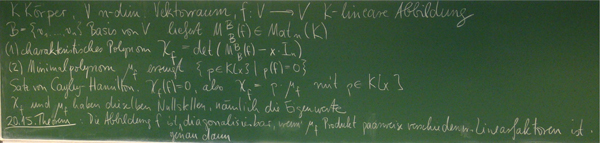 K Körper, V n-dim. Vektorraum, f: V → V K-lineare Abbildung
B = {v₁, ..., vₙ} Basis von V liefert M_B^B(f) ∈ Matₙ(K)
(1) charakteristisches Polynom χ_f = det(M_B^B(f) - x·Iₙ)
(2) Minimalpolynom μ_f erzeugt {p ∈ K[x] | p(f)=0}
Satz von Cayley-Hamilton. χ_f(f)=0, also χ_f = p·μ_f mit p ∈ K[x]
χ_f und μ_f haben dieselben Nullstellen, nämlich die Eigenwerte
20.15. Theorem. Die Abbildung f ist diagonalisierbar, wenn μ_f Produkt paarweise verschiedener Linearfaktoren ist.
genau dann